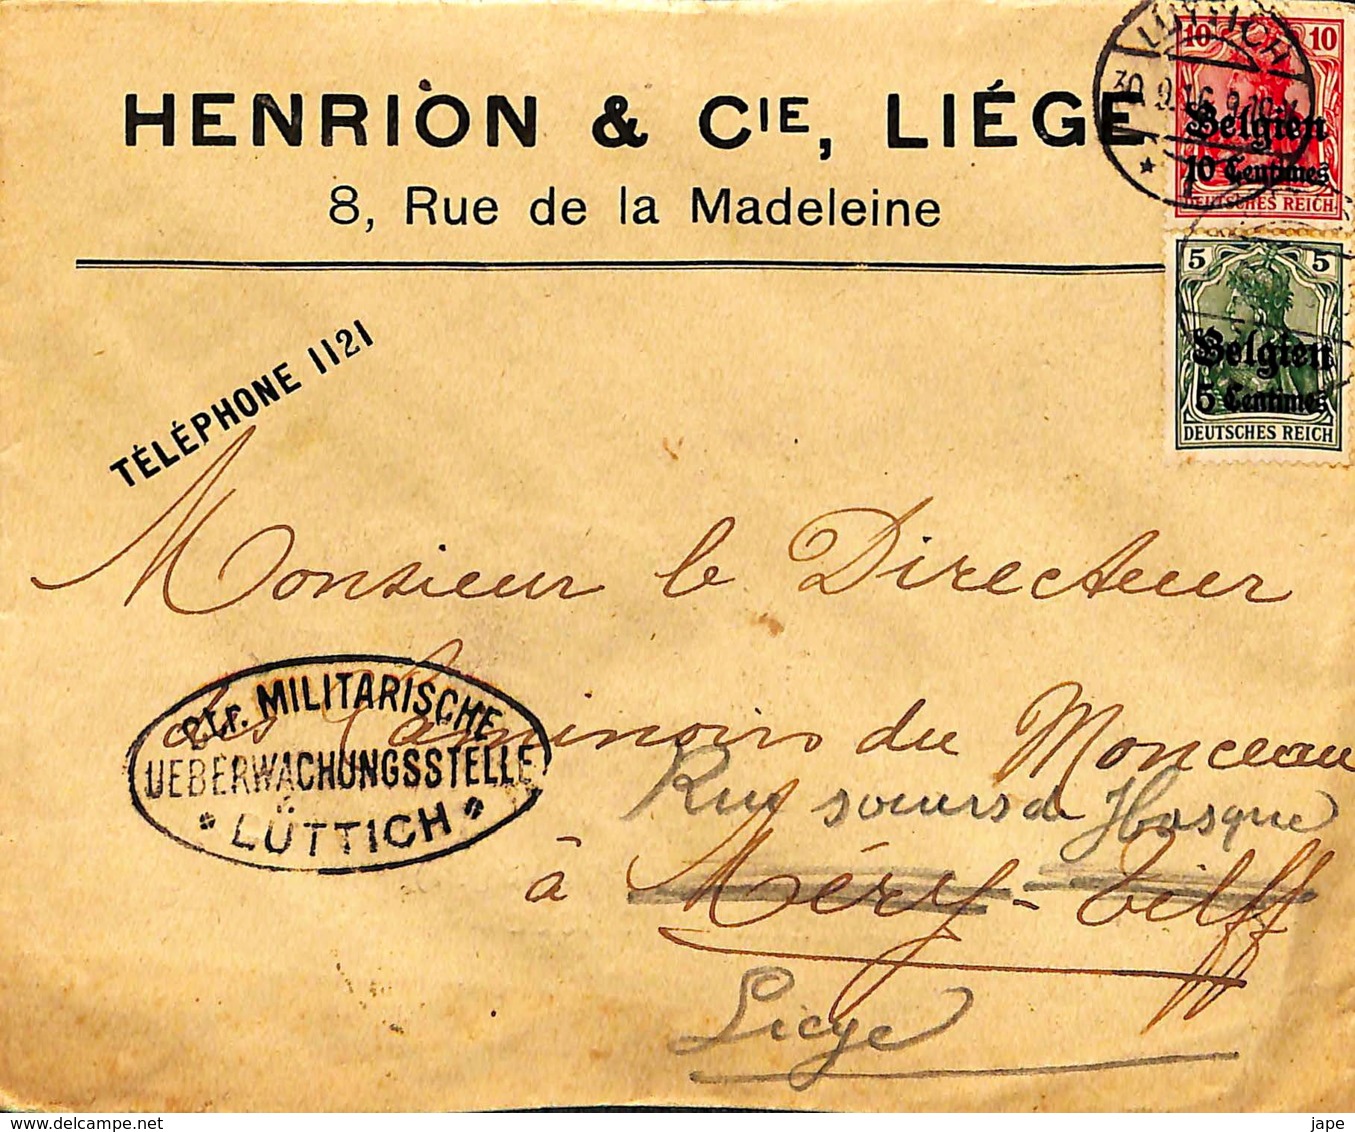 HENRION & CIE, LIÉGE
8, Rue de la Madeleine
TÉLÉPHONE 1121
LÜTTICH
30.9.16
10 10
Belgien
10 Centimes
DEUTSCHES REICH
5 5
Belgien
5 Centimes
DEUTSCHES REICH
Monsieur le Directeur
des Laminoirs du Monceau
MILITÄRISCHE
UEBERWACHUNGSSTELLE
* LÜTTICH *
Rue soeurs de Hasque
à Méry-Tilff
Liege
© delcampe.net
jape